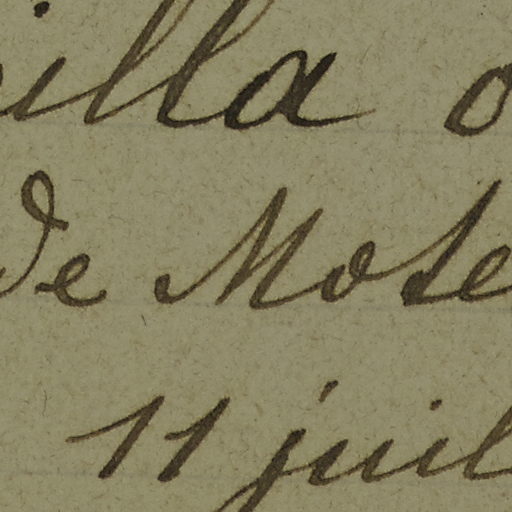 illa o
de Mote
11 juil